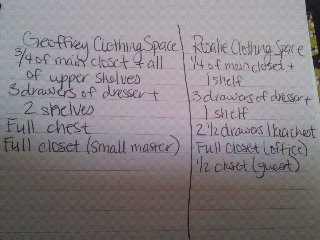 Geoffrey Clothing Space
3/4 of main closet + all
of upper shelves
3 drawers of dresser +
2 shelves
Full chest
Full closet (small master)
Rosalie Clothing Space
1/4 of main closet +
1 shelf
3 drawers of dresser +
1 shelf
2 1/2 drawers chest
Full closet (office)
1/2 closet (guest)